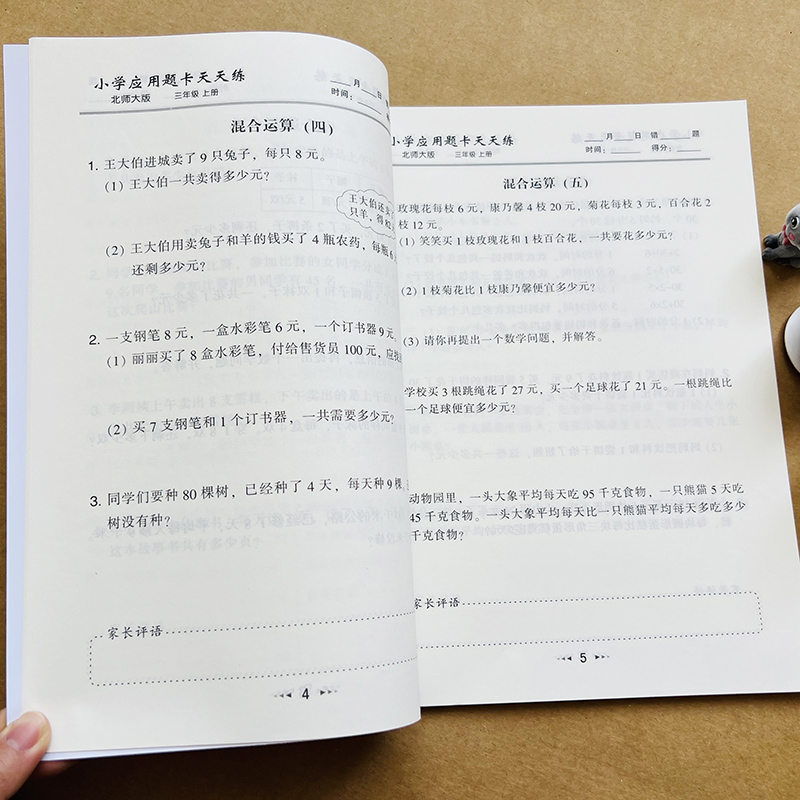 小学应用题卡天天练
月 日
北师大版 三年级 上册
时间：
混合运算（四）
1. 王大伯进城卖了 9 只兔子，每只 8 元。
（1）王大伯一共卖得多少元？
王大伯还
只羊，得
（2）王大伯用卖兔子和羊的钱买了 4 瓶农药，每瓶 6
还剩多少元？
2. 一支钢笔 8 元，一盒水彩笔 6 元，一个订书器 9 元。
（1）丽丽买了 8 盒水彩笔，付给售货员 100 元，应找
（2）买 7 支钢笔和 1 个订书器，一共需要多少元？
3. 同学们要种 80 棵树，已经种了 4 天，每天种 9 棵
树没有种？
家长评语
4
小学应用题卡天天练
月 日 错 题
北师大版 三年级 上册
时间： 得分：
混合运算（五）
玫瑰花每枝 6 元，康乃馨 4 枝 20 元，菊花每枝 3 元，百合花 2
枝 12 元。
（1）笑笑买 1 枝玫瑰花和 1 枝百合花，一共要花多少元？
（2）1 枝菊花比 1 枝康乃馨便宜多少元？
（3）请你再提出一个数学问题，并解答。
学校买 3 根跳绳花了 27 元，买一个足球花了 21 元。一根跳绳比
一个足球便宜多少元？
动物园里，一头大象平均每天吃 95 千克食物，一只熊猫 5 天吃
45 千克食物。一头大象平均每天比一只熊猫平均每天多吃多少
千克食物？
家长评语
5